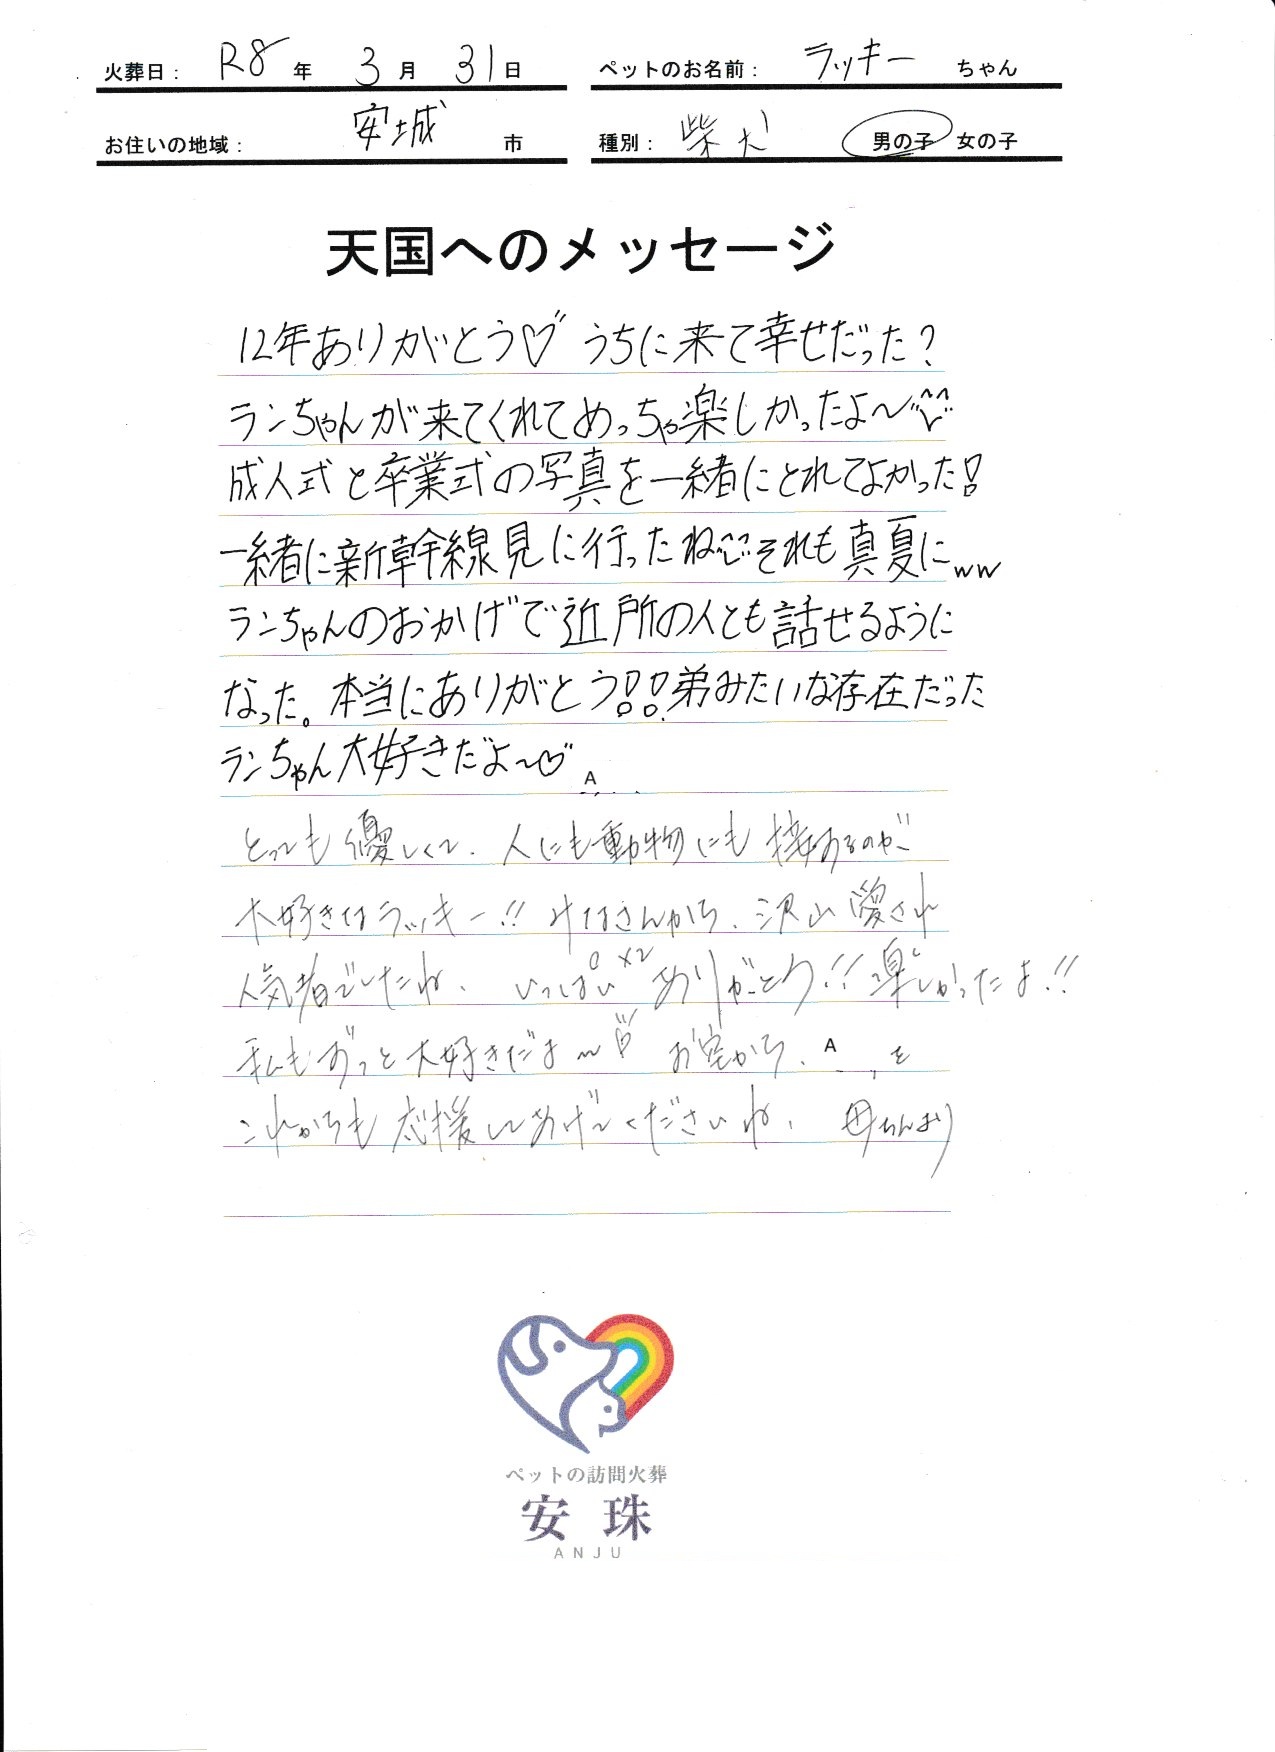 火葬日： R8 年 3 月 31 日 ペットのお名前： ラッキー ちゃん
お住いの地域： 安城 市 種別： 柴犬 男の子 女の子
天国へのメッセージ
12年ありがとう♡ うちに来て幸せだった？
ランちゃんが来てくれてめっちゃ楽しかったよ〜
成人式と卒業式の写真を一緒にとれてよかった！
一緒に新幹線見に行ったね それも真夏にww
ランちゃんのおかげで近所の人とも話せるように
なった。本当にありがとう！！弟みたいな存在だった
ランちゃん大好きだよ〜♡ A
とっても優しくて、人にも動物にも接するのが
大好きなラッキー!! みなさんから、沢山愛され
人気者でしたね、 いっぱい×2 ありがとう!! 楽しかったよ!!
私もずっと大好きだよ〜♡ お空から、A を
これからも応援してあげてくださいね、 母ちゃんより
ペットの訪問火葬
安珠
ANJU